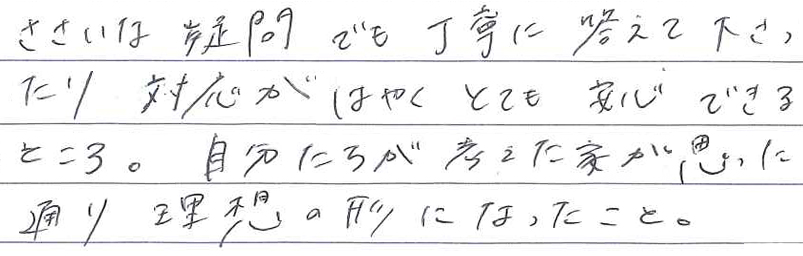 ささいな疑問でも丁寧に答えて下さっ
たり対応がはやくとても安心できる
ところ。自分たちが考えた家が思った
通り理想の形になったこと。